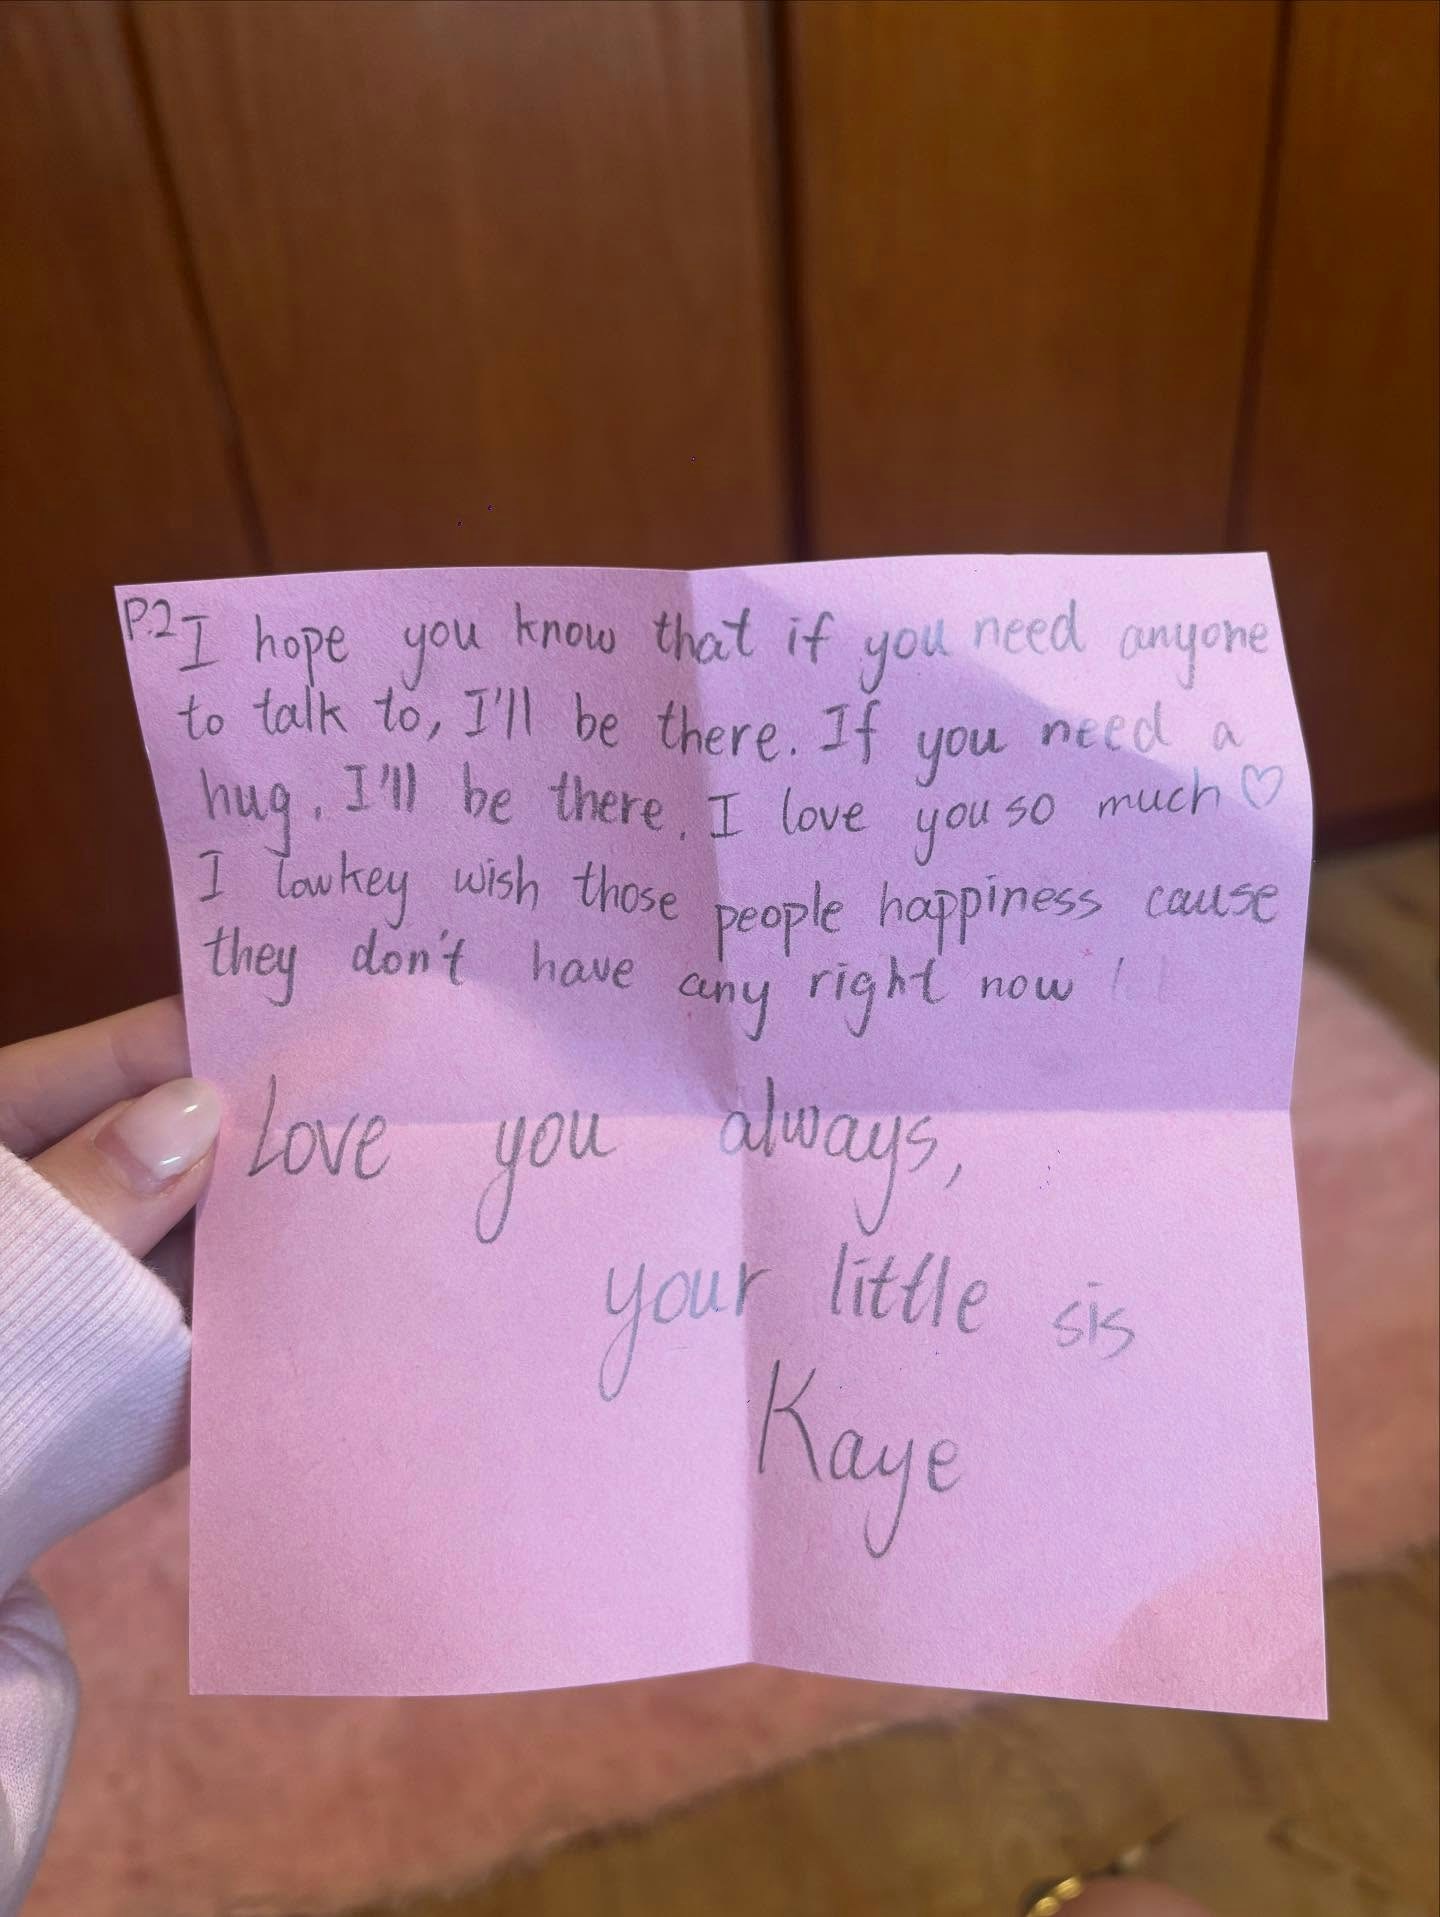 P.2 I hope you know that if you need anyone
to talk to, I'll be there. If you need a
hug, I'll be there. I love you so much ♡
I lowkey wish those people happiness cause
they don't have any right now
Love you always,
your little sis
Kaye